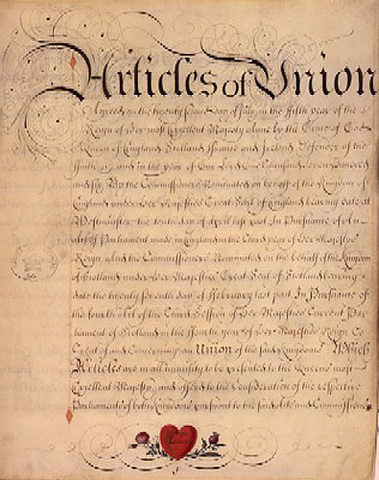 Articles of Union
Agreed on the twenty Second day of July in the fifth year of the
Reign of Her most Excellent Majesty Anne by the Grace of God
Queen of England Scotland France and Ireland Defender of the
Faith &c and in the year of Our Lord One thousand Seven hundred
and Six By the Commissioners Nominated on behalf of the Kingdom of
England under Her Majesties Great Seal of England bearing date at
Westminster the tenth day of April last past In Pursuance of an
Act of Parliament made in England in the third year of Her Majesties
Reign and the Commissioners Nominated on the behalf of the Kingdom
of Scotland under Her Majesties Great Seal of Scotland bearing
date the twenty Seventh day of February last past In Pursuance of
the fourth Act of the third Session of Her Majesties Current Par
liament of Scotland in the year of Her Majesties Reign to
Treat of and Concerning an Union of the said Kingdoms Which
Articles are in all humility to be presented to the Queens most
Excellent Majesty and offered to the Consideration of the respective
Parliaments of both Kingdoms pursuant to the said Acts and Commissions